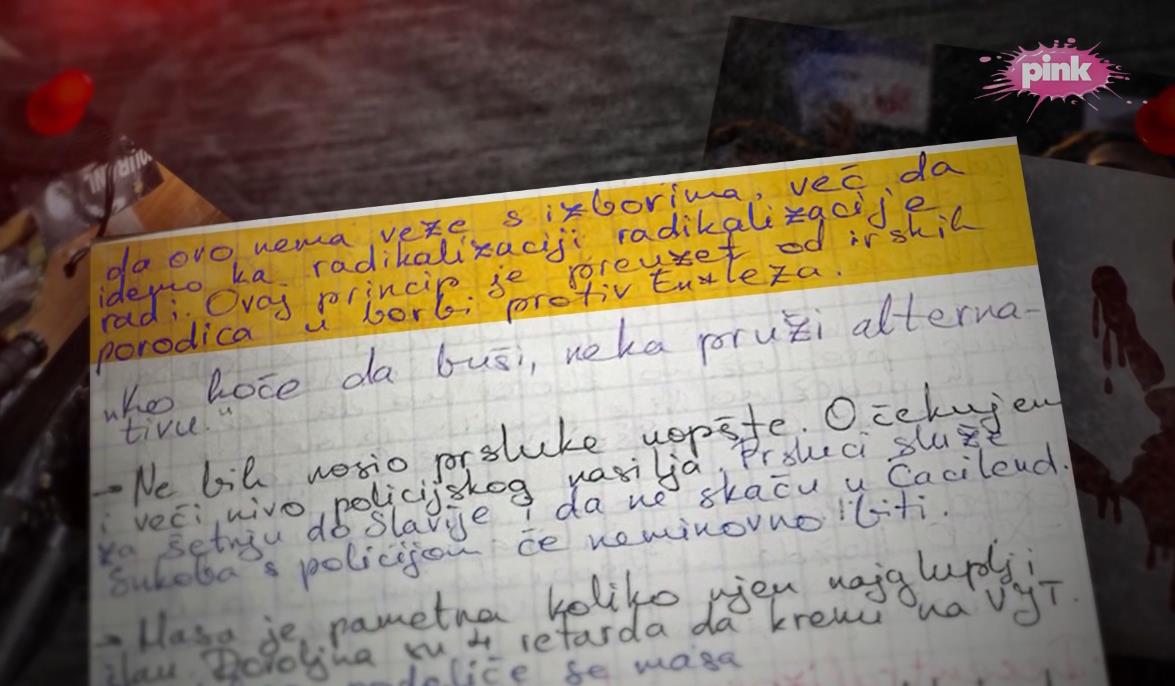 pink
da ovo nema veze s izborima, več da
idemo ka radikalizaciji radikalizacije
radi. Ovaj princip je preuzet od irskih
porodica u borbi protiv Engleza.
"ko hoče da buši, neka pruži alterna-
tivu."
→ Ne bih nosio prsluke uopšte. Očekujem
i veči nivo policijskog nasilja. Prsluci služe
za šetnju do Slavije i da ne skaču u Ćacilend.
Sukoba s policijom če neminovno biti.
→ Masa je pametna koliko njen najgluplji
član. Dovoljna su 4 retarda da krenu na VJT.
se masa